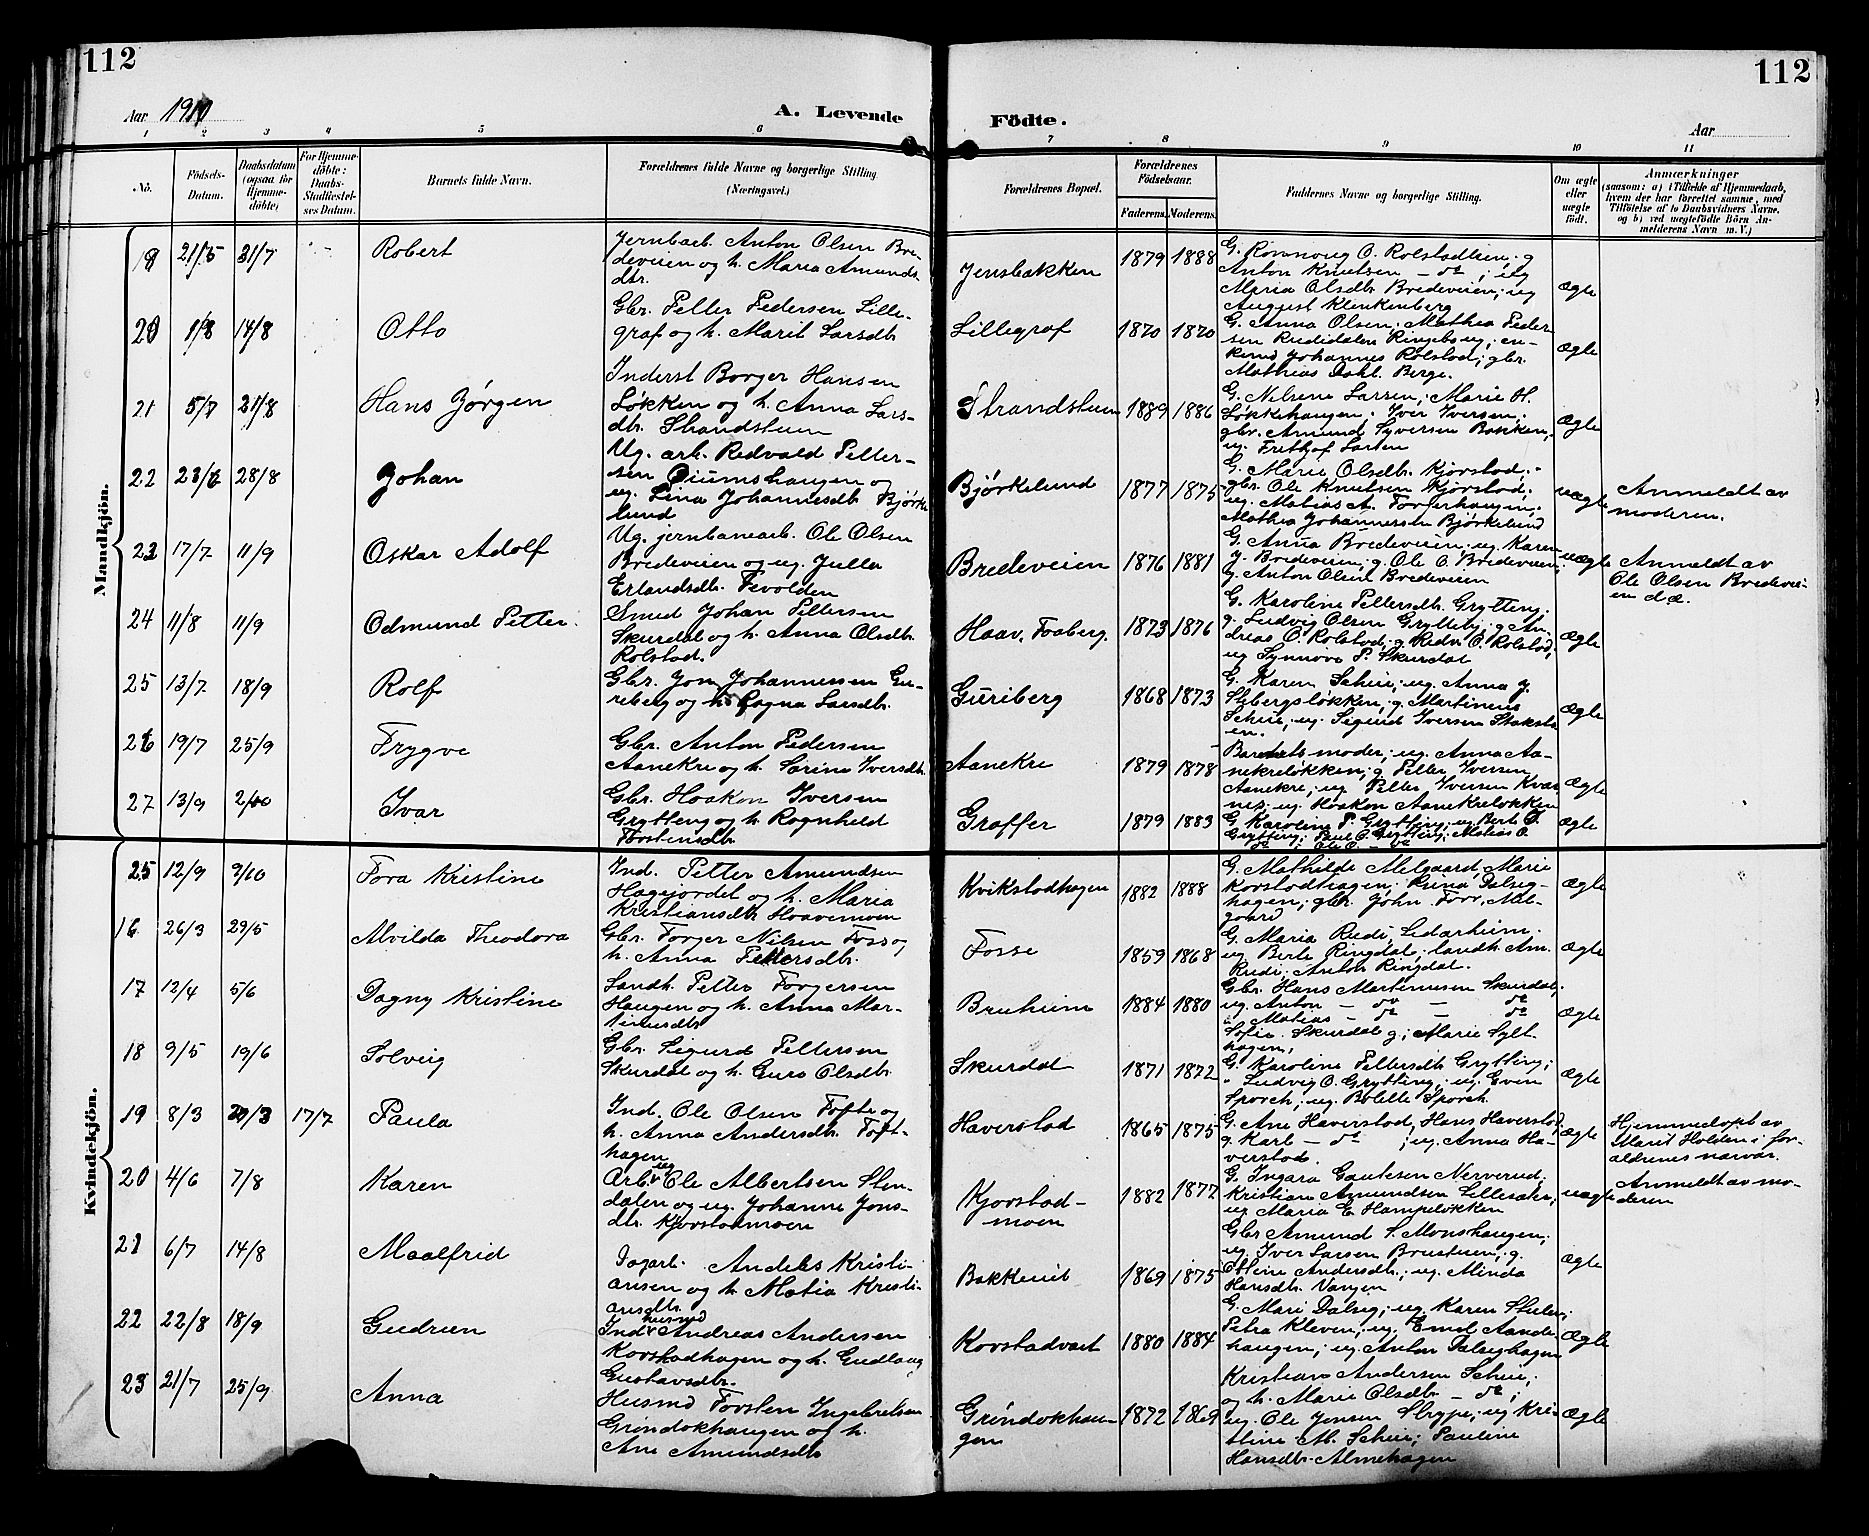 112
112
Aar 1910
A. Levende
Födte.
Aar
1 2 3 4 5 6 7 8 9 10 11
No.
Födsels-Datum.
Daabsdatum (ogsaa for Hjemme-döbte)
For Hjemme-döbte: Daabs-Stadfæstel-ses Datum.
Barnets fulde Navn.
Forældrenes fulde Navne og borgerlige Stilling (Næringsvei.)
Forældrenes Bopæl.
Forældrenes Födselsaar.
Faderens. Moderens.
Faddernes Navne og borgerlige Stilling.
Om ægte eller uægte födt.
Anmærkninger
(saasom: a) i Tilfælde af Hjemmedaab,
hvem der har forrettet samme, med
Tilföielse af to Daabsvidners Navne,
og b) ved uægtefödte Börn An-
melderens Navn m. V.)
Mandkjön.
19 21/5 31/7 Robert
Jernbarb. Anton Olsen Bre-
deveien og h. Maria Amunds
dtr.
Jensbakken 1879 1888
G. Rønnoug O. Rolstadlien, g
Anton Knutsen — do ; ug
Maria Olsdtr Bredeveien; ug
August Klenkenberg
Ægte
20 1/8 14/8 Otto
Gbr. Petter Pedersen Lille-
graf og h. Marit Larsdtr
Lillegraf 1870 1870
G. Anna Olsen; Mathea Peder-
sen Rudidalen Ringebu ug; en-
kemd Johannes Rolstad; gbr.
Mathias Dahl. Berge.
Ægte
21 5/7 21/8 Hans Jørgen
Inderst Borger Hansen
Løkken og h. Anna Lars-
dtr. Strandstuen
Strandstuen 1889 1886
G. Nilsene Larsen; Marie H.
Løkkehaugen; Iver Iversen;
gbr. Amund Syversen Bakken,
ug. Frithjof Larsen
Ægte
22 23/6 28/8 Johan
Ug. arb. Redvald Petter-
sen Oiumshaugen og
ug. Lina Johannesdtr Bjørke
lund
Bjørkelund 1877 1875
G. Marie Olsdtr. Kjørstad;
gbr. Ole Knutsen Kjørstad;
ug. Matias A. Forferhaugen;
Mathea Johannessen Bjørkelund
uægte
Anmeldt av
moderen.
23 17/7 11/9 Oskar Adolf
Ug. jernbanearb. Ole Olsen
Bredeveien og ug. Julla
Erlandsdtr. Fevolden
Bredeveien 1876 1881
G. Anna Bredeveien; ug Karen
J. Bredeveien; g. Ole O. Bredeveien;
g. Anton Olsen Bredeveien
uægte
Anmeldt av
Ole Olsen Bredevei-
en d.æ.
24 11/8 11/9 Odmund Petter.
Smed Johan Pettersen
Skurdal og h. Anna Olsdtr.
Rolstad.
Haav, Faaberg. 1873 1876
G. Karoline Pettersdtr. Grytting;
g. Ludvig Olsen Grytting; g An-
dreas O. Rolstad; g. Redv. O. Rolstad,
ug Synnøve P. Skurdal
Ægte
25 13/7 18/9 Rolf
Gbr. Jon Johannessen Gu-
reberg og h. Ragna Larsdtr.
Guriberg 1868 1873
G. Karen Scheie; ug. Anna J.
Stebergsløkken; g Martinus
Scheie, ug. Sigurd Iversen Stakstu-
en.
Ægte
26 19/7 25/9 Trygve
Gbr. Anton Pedersen
Aanekre og h. Sørine Iversdtr.
Aanekre 1879 1878
Barnets moder; ug. Anna Aa-
nekreløkken; g Petter Iversen
Aanekre; ug Petter Iversen Kvar
nes; ug. Haakon Aanekreløkken
Ægte
27 13/9 2/10 Ivar
Gbr. Haakon Iversen
Grytting og h. Ragnheld
Torstensdtr.
Graffer 1879 1883
G Karoline P. Grytting; ug Berte O
Grytting; Paul O. Grytting; Matias O
do ; Ole O. — do
Ægte
Kvindekjön.
25 12/9 9/10 Tora Kristine
Ind. Petter Amundsen
Hagejordet og h. Maria
Kristiansdtr. Haavemoen
Kvikstadhagen 1882 1888
G. Mathilde Melgaard, Marie
Korstadhagen; Runa Dalseg-
hagen; gbr. John Torr. Mel-
gaard
Ægte
16 26/3 29/5 Alvilda Theodora
Gbr. Torger Nilsen Foss og
h. Anna Pettersdtr.
Fosse 1859 1868
G. Maria Rudi, Sdarheim.
ug Berte Ringdal; landh. Am.
Rudi; Anton Ringdal.
Ægte
17 12/4 5/6 Dagny Kristine
Landh. Petter Torgersen
Haugen og h. Anna Mar-
tinusdtr.
Bruheim 1884 1880
Gbr. Hans Martinusen Skurdal;
ug. Anton — do — do
" Matias — do do
Sofie Skurdal g; Marie Sylt
hagen;
Ægte
18 9/5 19/6 Solveig
Gbr. Sigurd Pettersen
Skurdal og h. Guro Olsdtr.
Skurdal 1871 1872
G. Karoline Pettersdtr Grytting;
" Ludvig O. Grytting; ug. Even
Sporch; ug. Bolette Sporch.
Ægte
19 8/3 20/3 17/7 Paula
Ind. Ole Olsen Tofte og
h. Anna Andersdtr. Toft-
hagen
Haverstad 1865 1875
G. Ane Haverstad, Hans Haverstad,
g. Karl — do ; ug. Anna Ha-
verstad.
Ægte
Hjemmedøpt av
Marit Holden i for-
ældrenes nærvær.
20 4/6 7/8 Karen
Arb. ug Ole Albertsen Sten-
dalen og ug. Johanne Jons
dtr. Kjorstadmoen
Kjorstad-
moen 1882 1877
G. Ingara Gautesen Nerverud;
Kristian Amundsen Lillesæter;
ug Maria E. Hampeløkken
uægte
Anmeldt av mo-
deren
21 6/7 14/8 Maalfrid
Dagarb. Anders Kristi-
ansen og h. Matia Kristi-
ansdtr.
Bakkenit 1869 1875
Gbr Amund S. Monshaugen;
ug. Iver Larsen Brustuen; g.
Ottine Andersdtr.; ug. Minda
Hansdtr. Vangen
Ægte
22 22/8 18/9 Gudrun
Ind. husmd Andreas Andersen
Korstadhagen og h. Gudlaug
Gustavsdtr.
Korstadvart 1880 1884
G. Mari Dalseg; ug. Karen Stulen;
Petra Kleven; ug. Emil Aande-
haugen; ug Anton Dalseghagen
Ægte
23 21/7 25/9 Anna
Husmd Torsten Ingebretsen
Grindokhaugen og h.
Ane Amundsdtr
Grindokhau-
gen 1872 1869
Kristian Andersen Scheie;
og h. Marie Olsdtr — do ;
ug. Ole Jensen Strype; ug Kri-
stine M. Scheie; Pauline
Hansdtr. Almehagen
Ægte